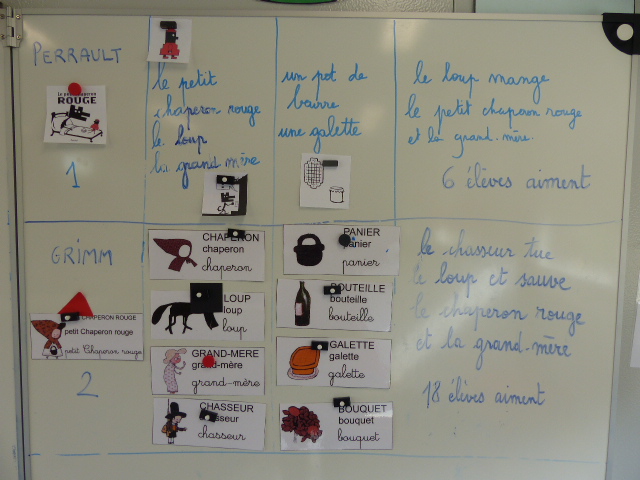 PERRAULT
Le petit chaperon
ROUGE
1
le petit
chaperon rouge
le loup
la grand mère
un pot de
beurre
une galette
le loup mange
le petit chaperon rouge
et la grand-mère.
6 élèves aiment
GRIMM
CHAPERON ROUGE
petit Chaperon rouge
petit Chaperon rouge
2
CHAPERON
chaperon
chaperon
LOUP
loup
loup
GRAND-MERE
grand-mère
grand-mère
CHASSEUR
chasseur
chasseur
PANIER
panier
panier
BOUTEILLE
bouteille
bouteille
GALETTE
galette
galette
BOUQUET
bouquet
bouquet
le chasseur tue
le loup et sauve
le chaperon rouge
et la grand-mère
18 élèves aiment